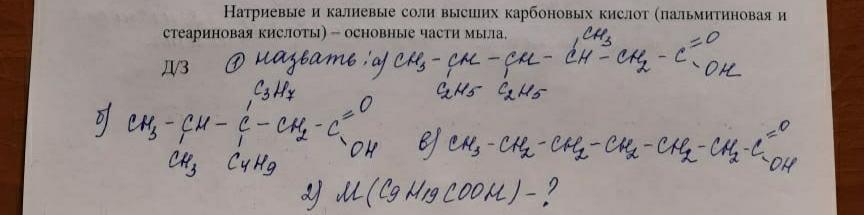 Натриевые и калиевые соли высших карбоновых кислот (пальмитиновая и
стеариновая кислоты) – основные части мыла.
Д/З ① назвать: а) CH3 - CH - CH - CH - CH2 - C =O OH
CH3
C2H5 C2H5
C3H7
б) CH3 - CH - C - CH2 - C =O OH
CH3 C4H9
в) CH3 - CH2 - CH2 - CH2 - CH2 - CH2 - C =O OH
2) M(C9H19COOH) - ?